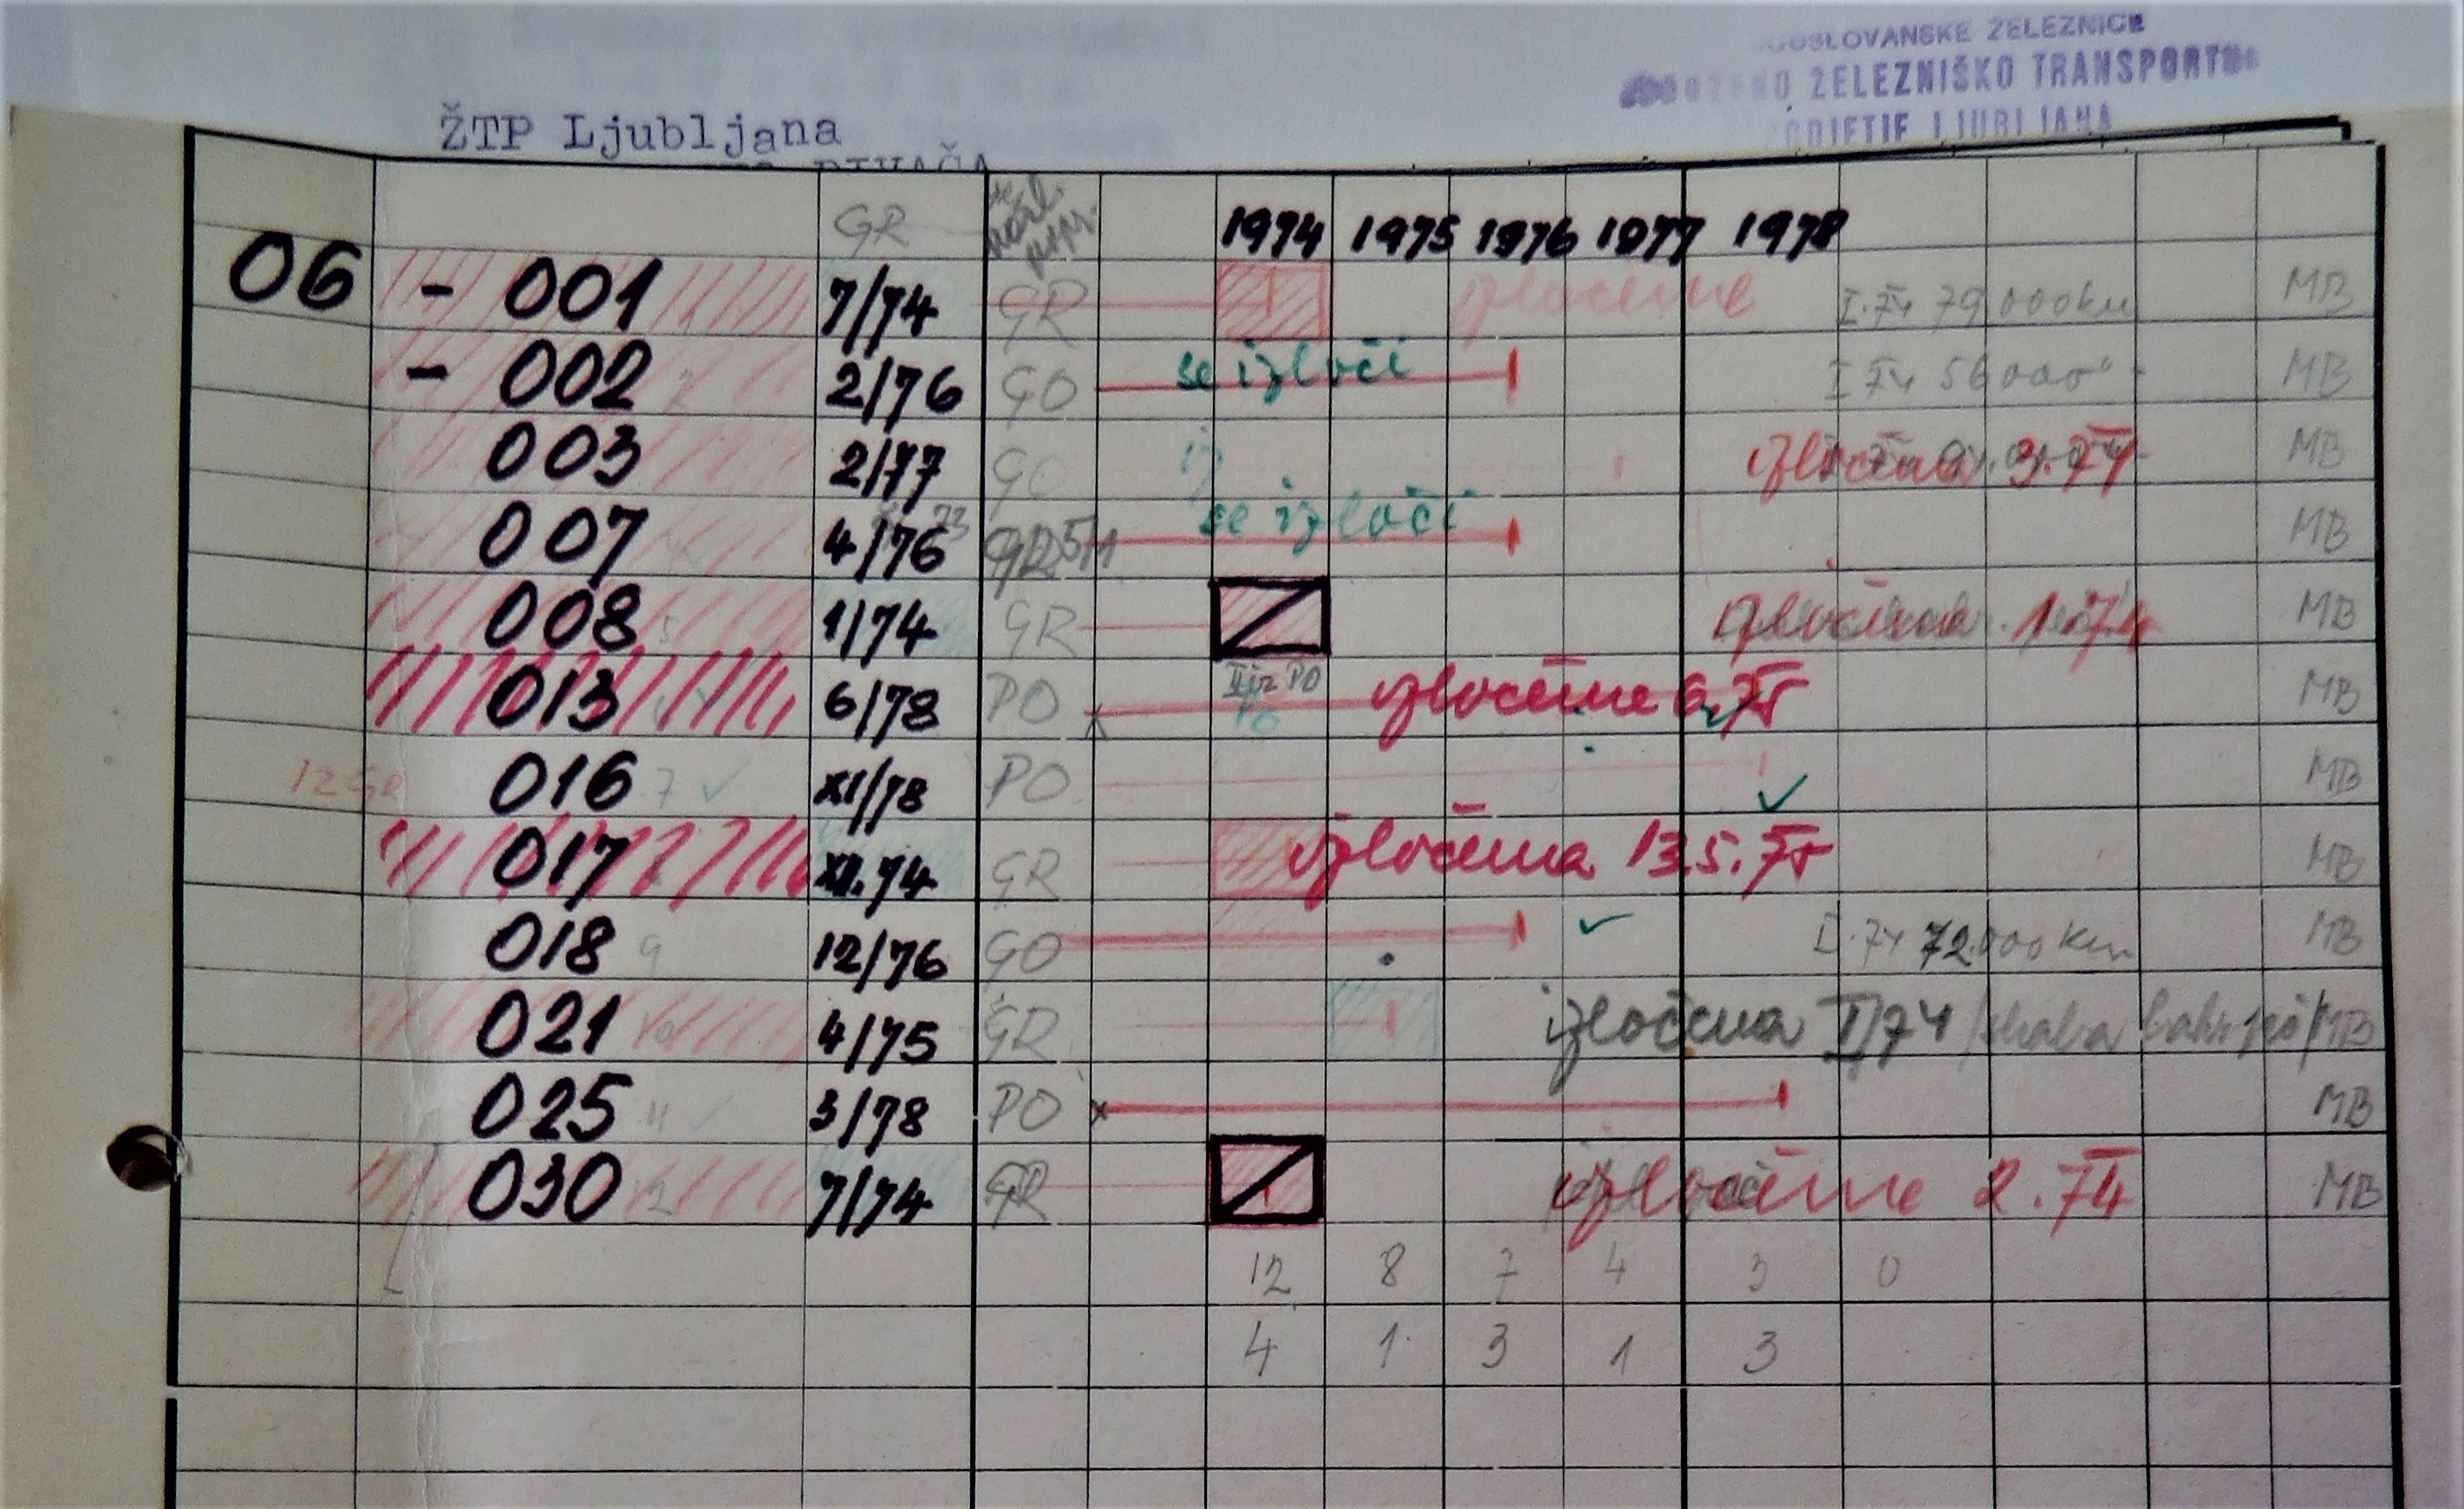 ŽELEZNICE
ŽELEZNIŠKO TRANSPORTNO
LJUBLJANA
ŽTP Ljubljana
DIVAČA
GR 1974 1975 1976 1977 1978
06 - 001 7/74 GR izločene I.74 79000km MB
- 002 2/76 GO se izloči I 74 56000 MB
003 2/77 GO iz izločena 3.74 MB
007 4/76 GR se izloči MB
008 1/74 GR izločena 1.74 MB
013 6/78 PO PO izločene 6.75 MB
12 GR 016 7 XI/78 PO MB
017 XII.74 GR izločena 13.5.75 MB
018 9 12/76 GO I.74 72.000 km MB
021 10 4/75 GR izločena I/74 MB
025 11 3/78 PO MB
030 12 7/74 GR izločene 2.74 MB
12 8 7 4 3 0
4 1 3 1 3